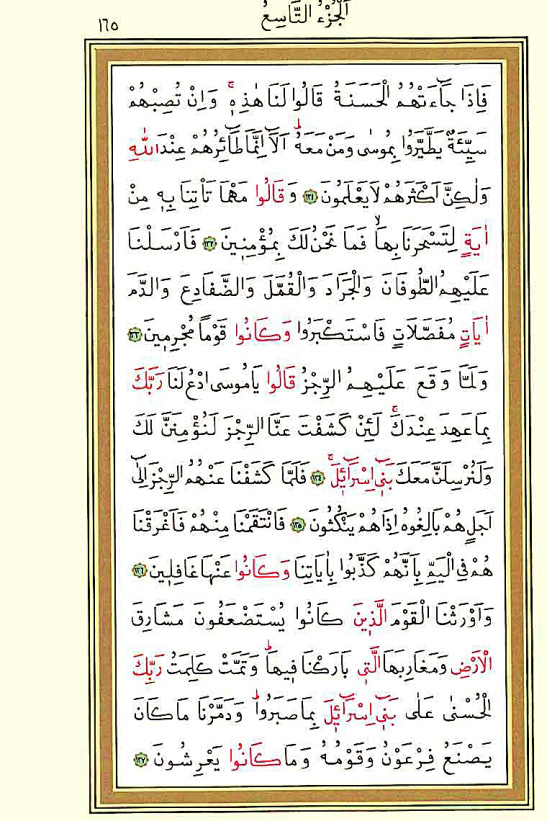 اَلْجُزْءُ التَّاسِعُ
١٦٥
فَاِذَا جَٓاءَتْهُمُ الْحَسَنَةُ قَالُوا لَنَا هٰذِهٖۚ وَاِنْ تُصِبْهُمْ
سَيِّئَةٌ يَطَّيَّرُوا بِمُوسٰى وَمَنْ مَعَهُؕ اَلَٓا اِنَّمَا طَٓائِرُهُمْ عِنْدَ اللّٰهِ
وَلٰكِنَّ اَكْثَرَهُمْ لَا يَعْلَمُونَ ﴿١٣١﴾ وَقَالُوا مَهْمَا تَأْتِنَا بِهٖ مِنْ
اٰيَةٍ لِتَسْحَرَنَا بِهَاۙ فَمَا نَحْنُ لَكَ بِمُؤْمِنٖينَ ﴿١٣٢﴾ فَاَرْسَلْنَا
عَلَيْهِمُ الطُّوفَانَ وَالْجَرَادَ وَالْقُمَّلَ وَالضَّفَادِعَ وَالدَّمَ
اٰيَاتٍ مُفَصَّلَاتٍ فَاسْتَكْبَرُوا وَكَانُوا قَوْمًا مُجْرِمٖينَ ﴿١٣٣﴾
وَلَمَّا وَقَعَ عَلَيْهِمُ الرِّجْزُ قَالُوا يَا مُوسَى ادْعُ لَنَا رَبَّكَ
بِمَا عَهِدَ عِنْدَكَۚ لَئِنْ كَشَفْتَ عَنَّا الرِّجْزَ لَنُؤْمِنَنَّ لَكَ
وَلَنُرْسِلَنَّ مَعَكَ بَنٖٓى اِسْرَٓائٖيلَۚ ﴿١٣٤﴾ فَلَمَّا كَشَفْنَا عَنْهُمُ الرِّجْزَ اِلٰٓى
اَجَلٍ هُمْ بَالِغُوهُ اِذَا هُمْ يَنْكُثُونَ ﴿١٣٥﴾ فَانْتَقَمْنَا مِنْهُمْ فَاَغْرَقْنَا
هُمْ فِى الْيَمِّ بِاَنَّهُمْ كَذَّبُوا بِاٰيَاتِنَا وَكَانُوا عَنْهَا غَافِلٖينَ ﴿١٣٦﴾
وَاَوْرَثْنَا الْقَوْمَ الَّذٖينَ كَانُوا يُسْتَضْعَفُونَ مَشَارِقَ
الْاَرْضِ وَمَغَارِبَهَا الَّتٖى بَارَكْنَا فٖيهَاؕ وَتَمَّتْ كَلِمَتُ رَبِّكَ
الْحُسْنٰى عَلٰى بَنٖٓى اِسْرَٓائٖيلَ بِمَا صَبَرُواؕ وَدَمَّرْنَا مَا كَانَ
يَصْنَعُ فِرْعَوْنُ وَقَوْمُهُ وَمَا كَانُوا يَعْرِشُونَ ﴿١٣٧﴾